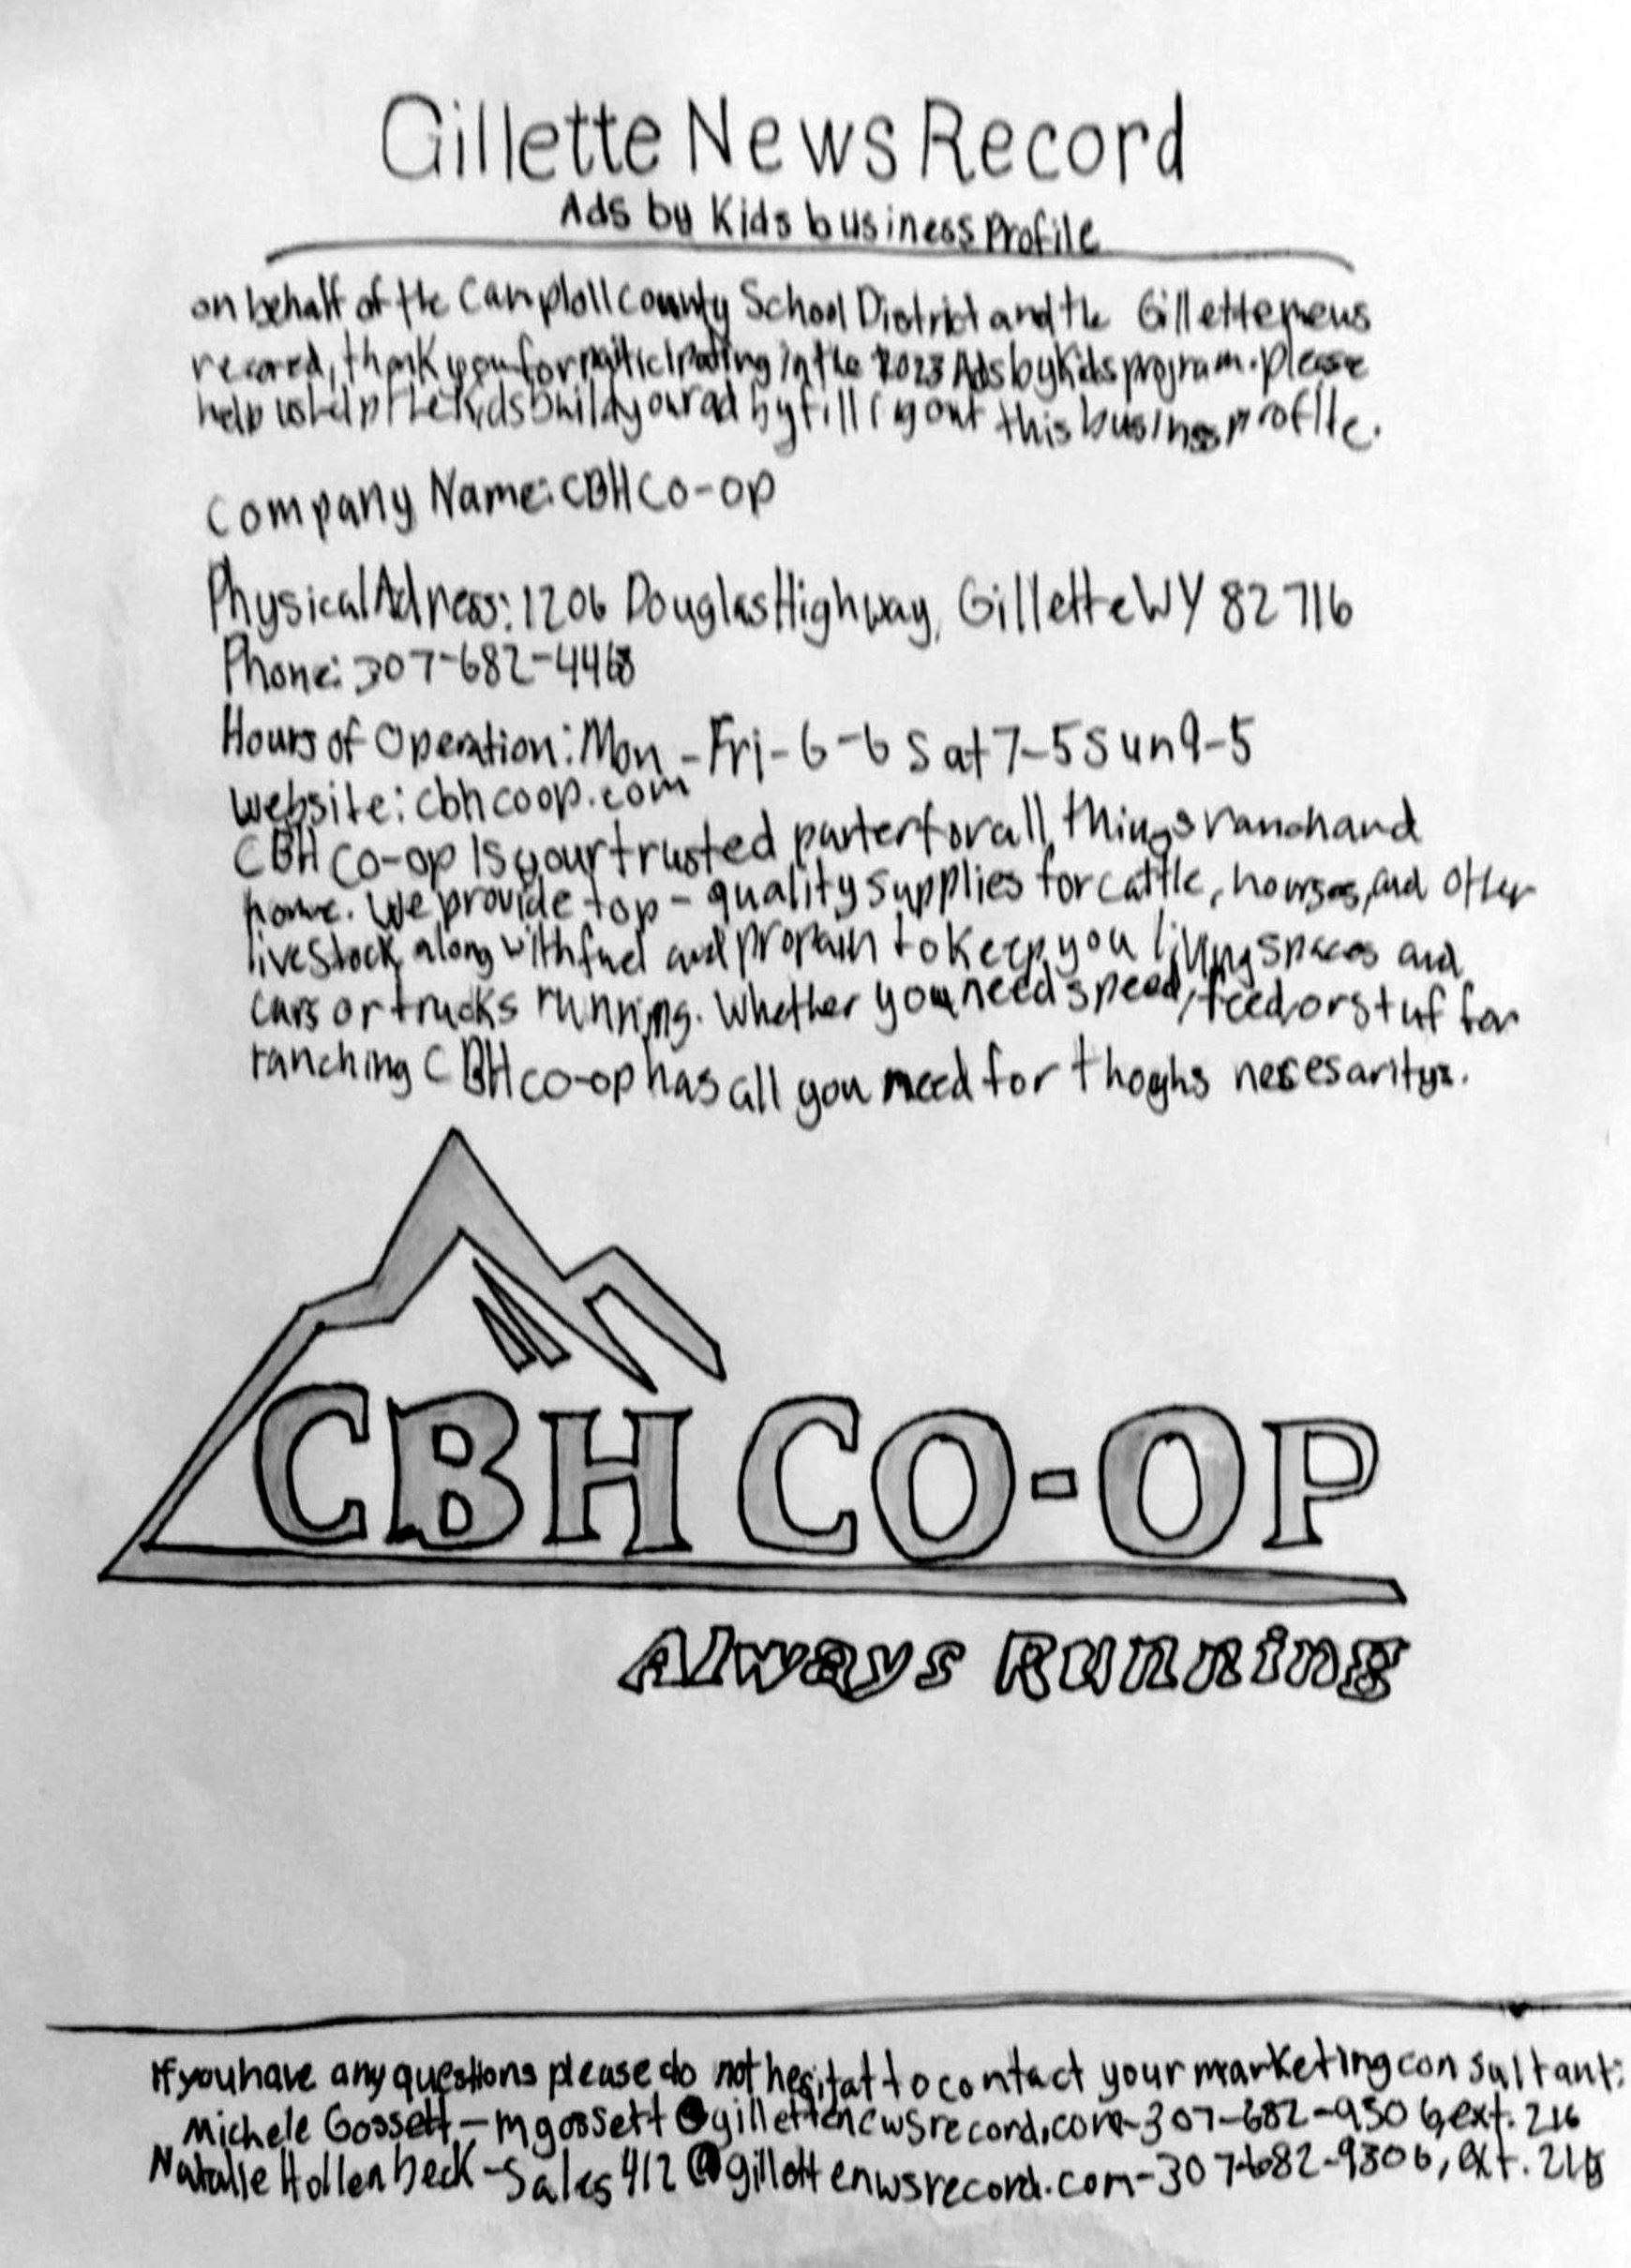 Gillette News Record
Ads by Kids business Profile
on behalf of the Camploll County School District and the Gillette news
record, thank you for participating in the 2023 Ads by Kids program. Please
help us help the kids build your ad by fillig out this business profile.
Company Name: CBH Co-op
Physical Adress: 1206 Douglas Highway, Gillette WY 82716
Phone: 307-682-4468
Hours of Operation: Mon - Fri - 6-6 Sat 7-5 Sun 9-5
website: cbhcoop.com
CBH Co-op Is your trusted parter for all things ranch and
home. We provide top-quality supplies for cattle, horses, and other
livestock, along with fuel and propain to keep you living spaces and
cars or trucks running. Whether you need speed, feed or stuf for
ranching CBH co-op has all you need for thoghs necesaritys.
CBH CO-OP
Always Running
If you have any questions please do not hesitat to contact your marketing consultant:
Michele Gossett - mgossett@gillettenewsrecord.com-307-682-9306, ext. 216
Natalie Hollenbeck - Sales412@gillettenwsrecord.com-307-682-9306, ext. 218